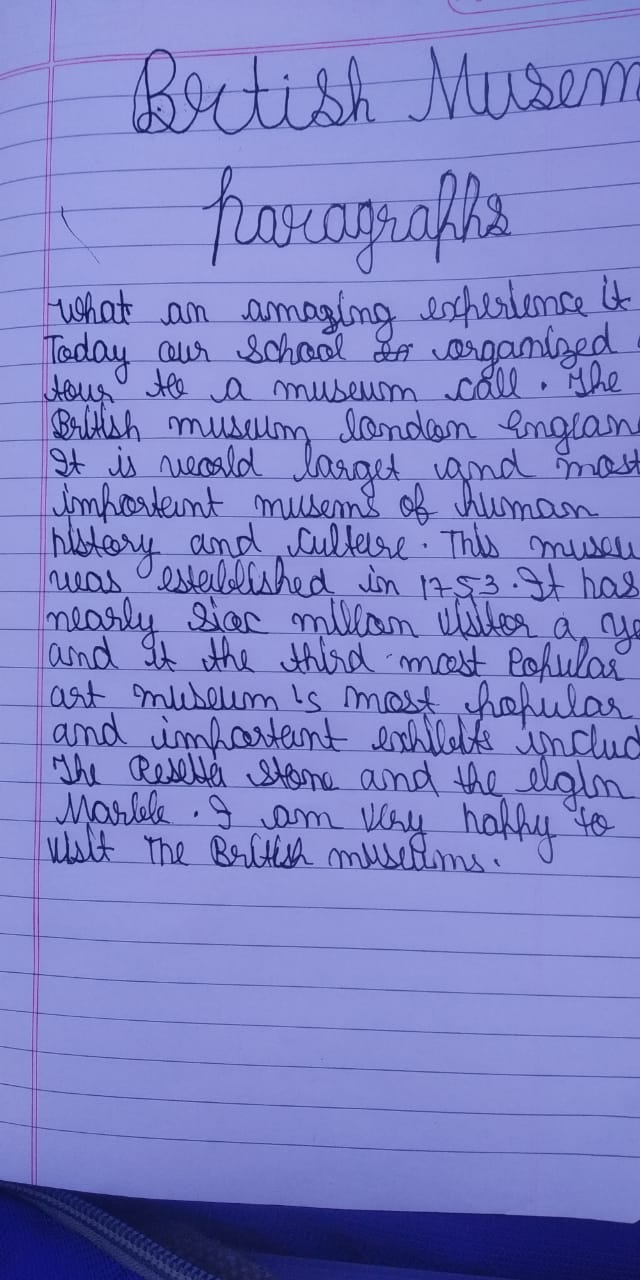 British Musem
Paragraphs
What an amazing experience it
Today our school organized
tour to a museum call. The
British museum london Englan
It is world larget and most
importent musems of human
history and culture. This museu
was established in 1753. It has
nearly siox millon visiter a ye
and It the third most Popular
art museum's most popular
and important exhibits includ
The Resetta stone and the elgin
Marble. I am very happy to
visit The British museums.